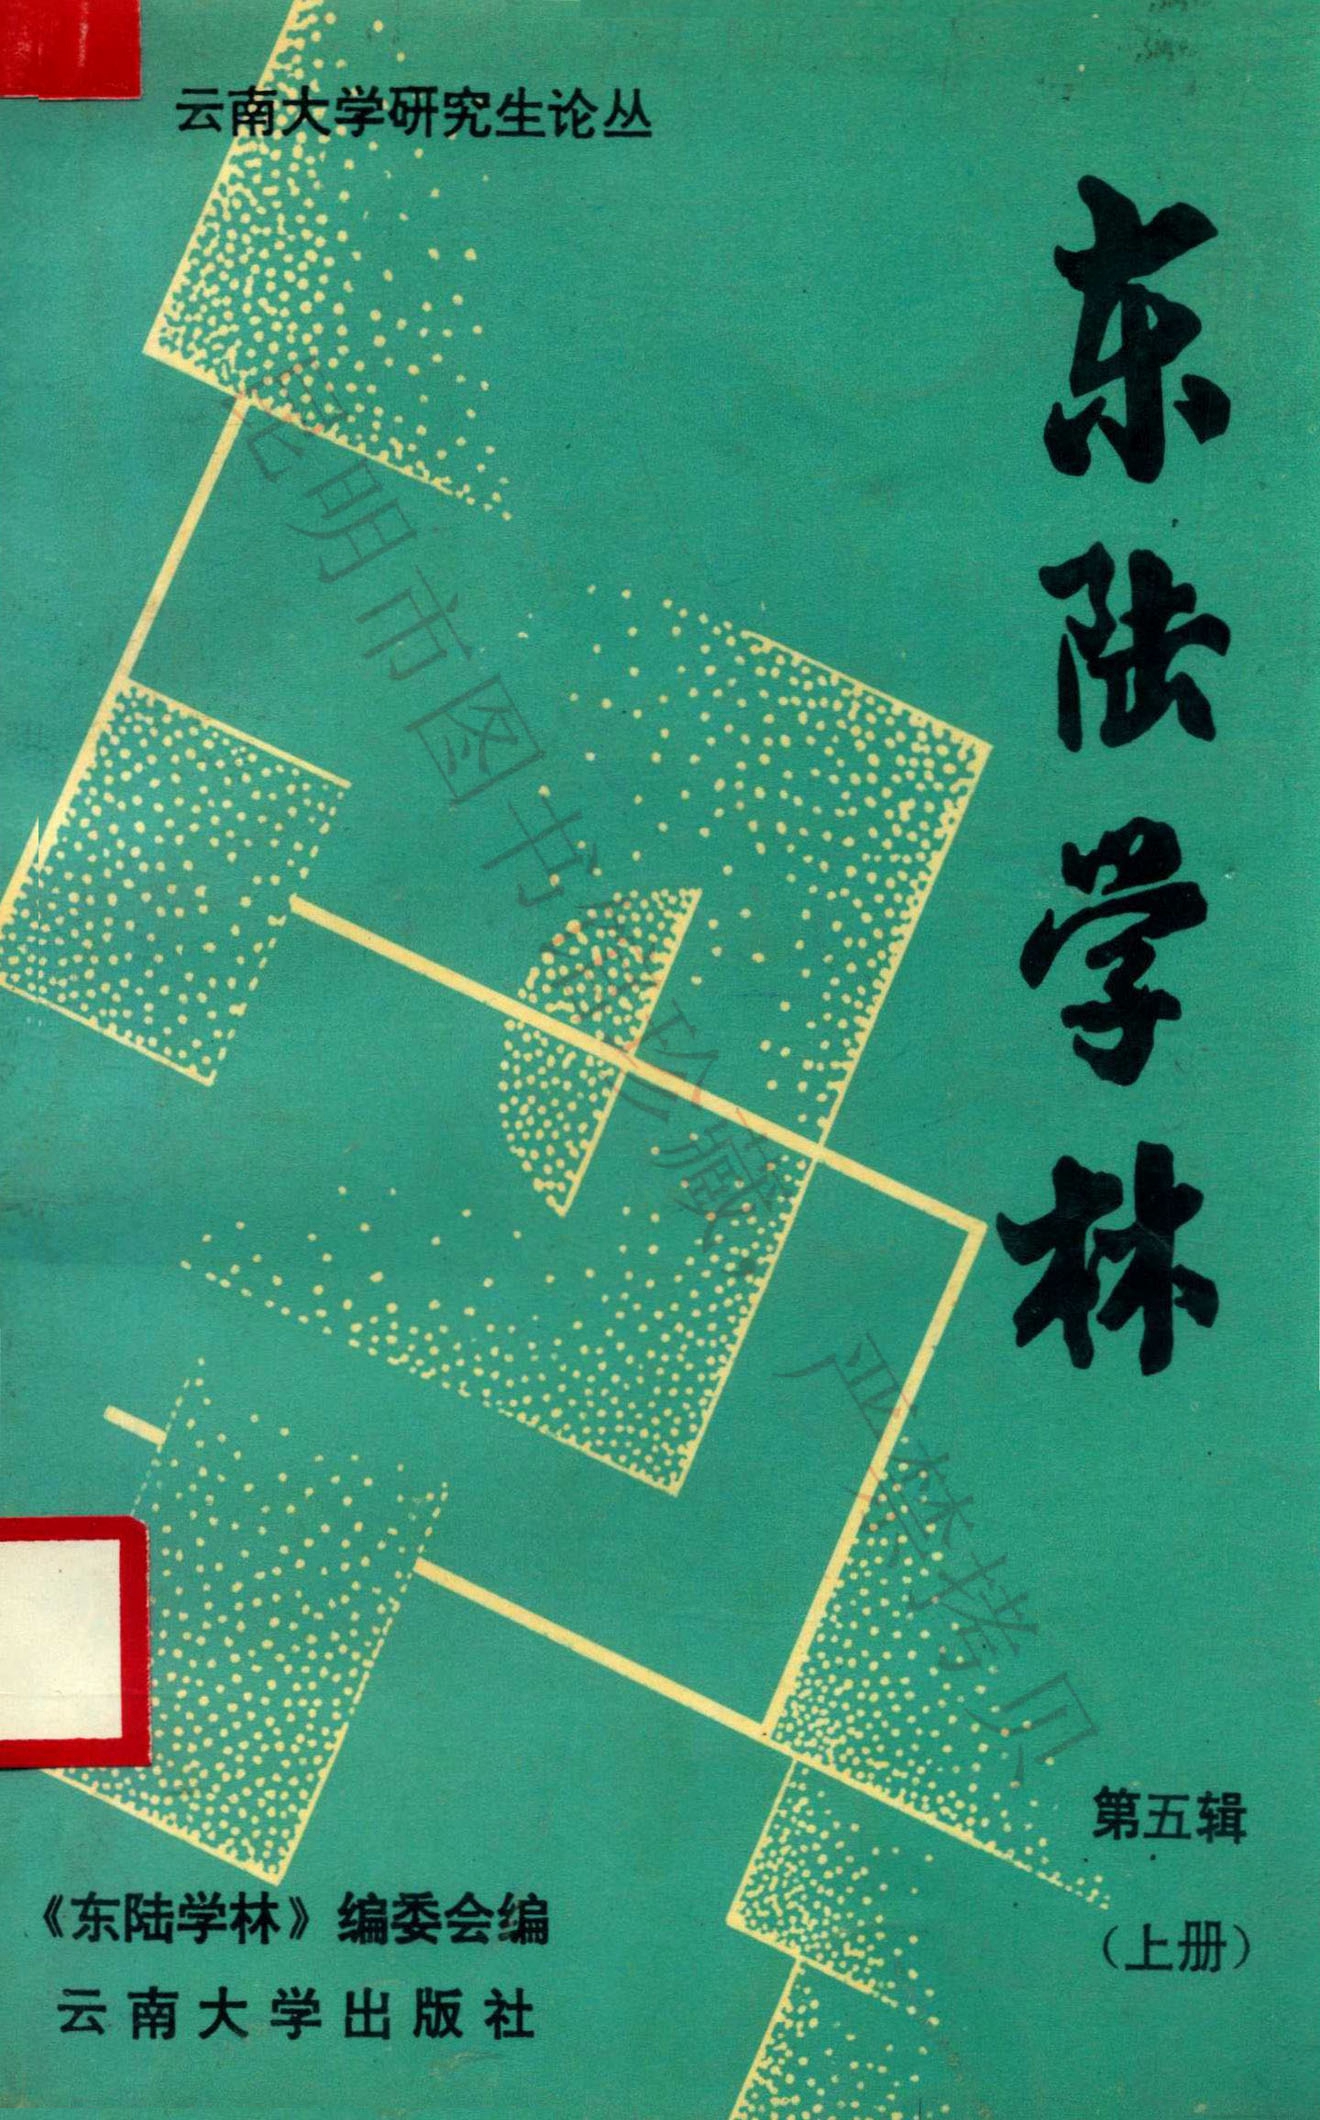 云南大学研究生论丛
东陆学林
第五辑
（上册）
《东陆学林》编委会编
云南大学出版社
昆明市图书馆珍藏
严禁拷贝